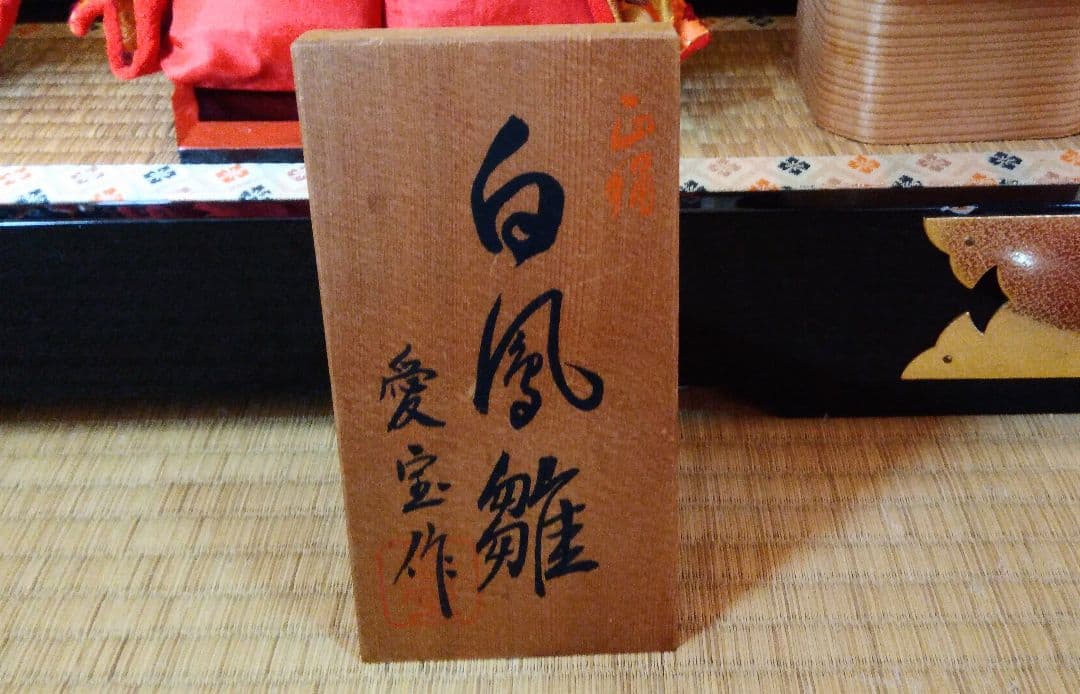 白鳳雛
愛宝作